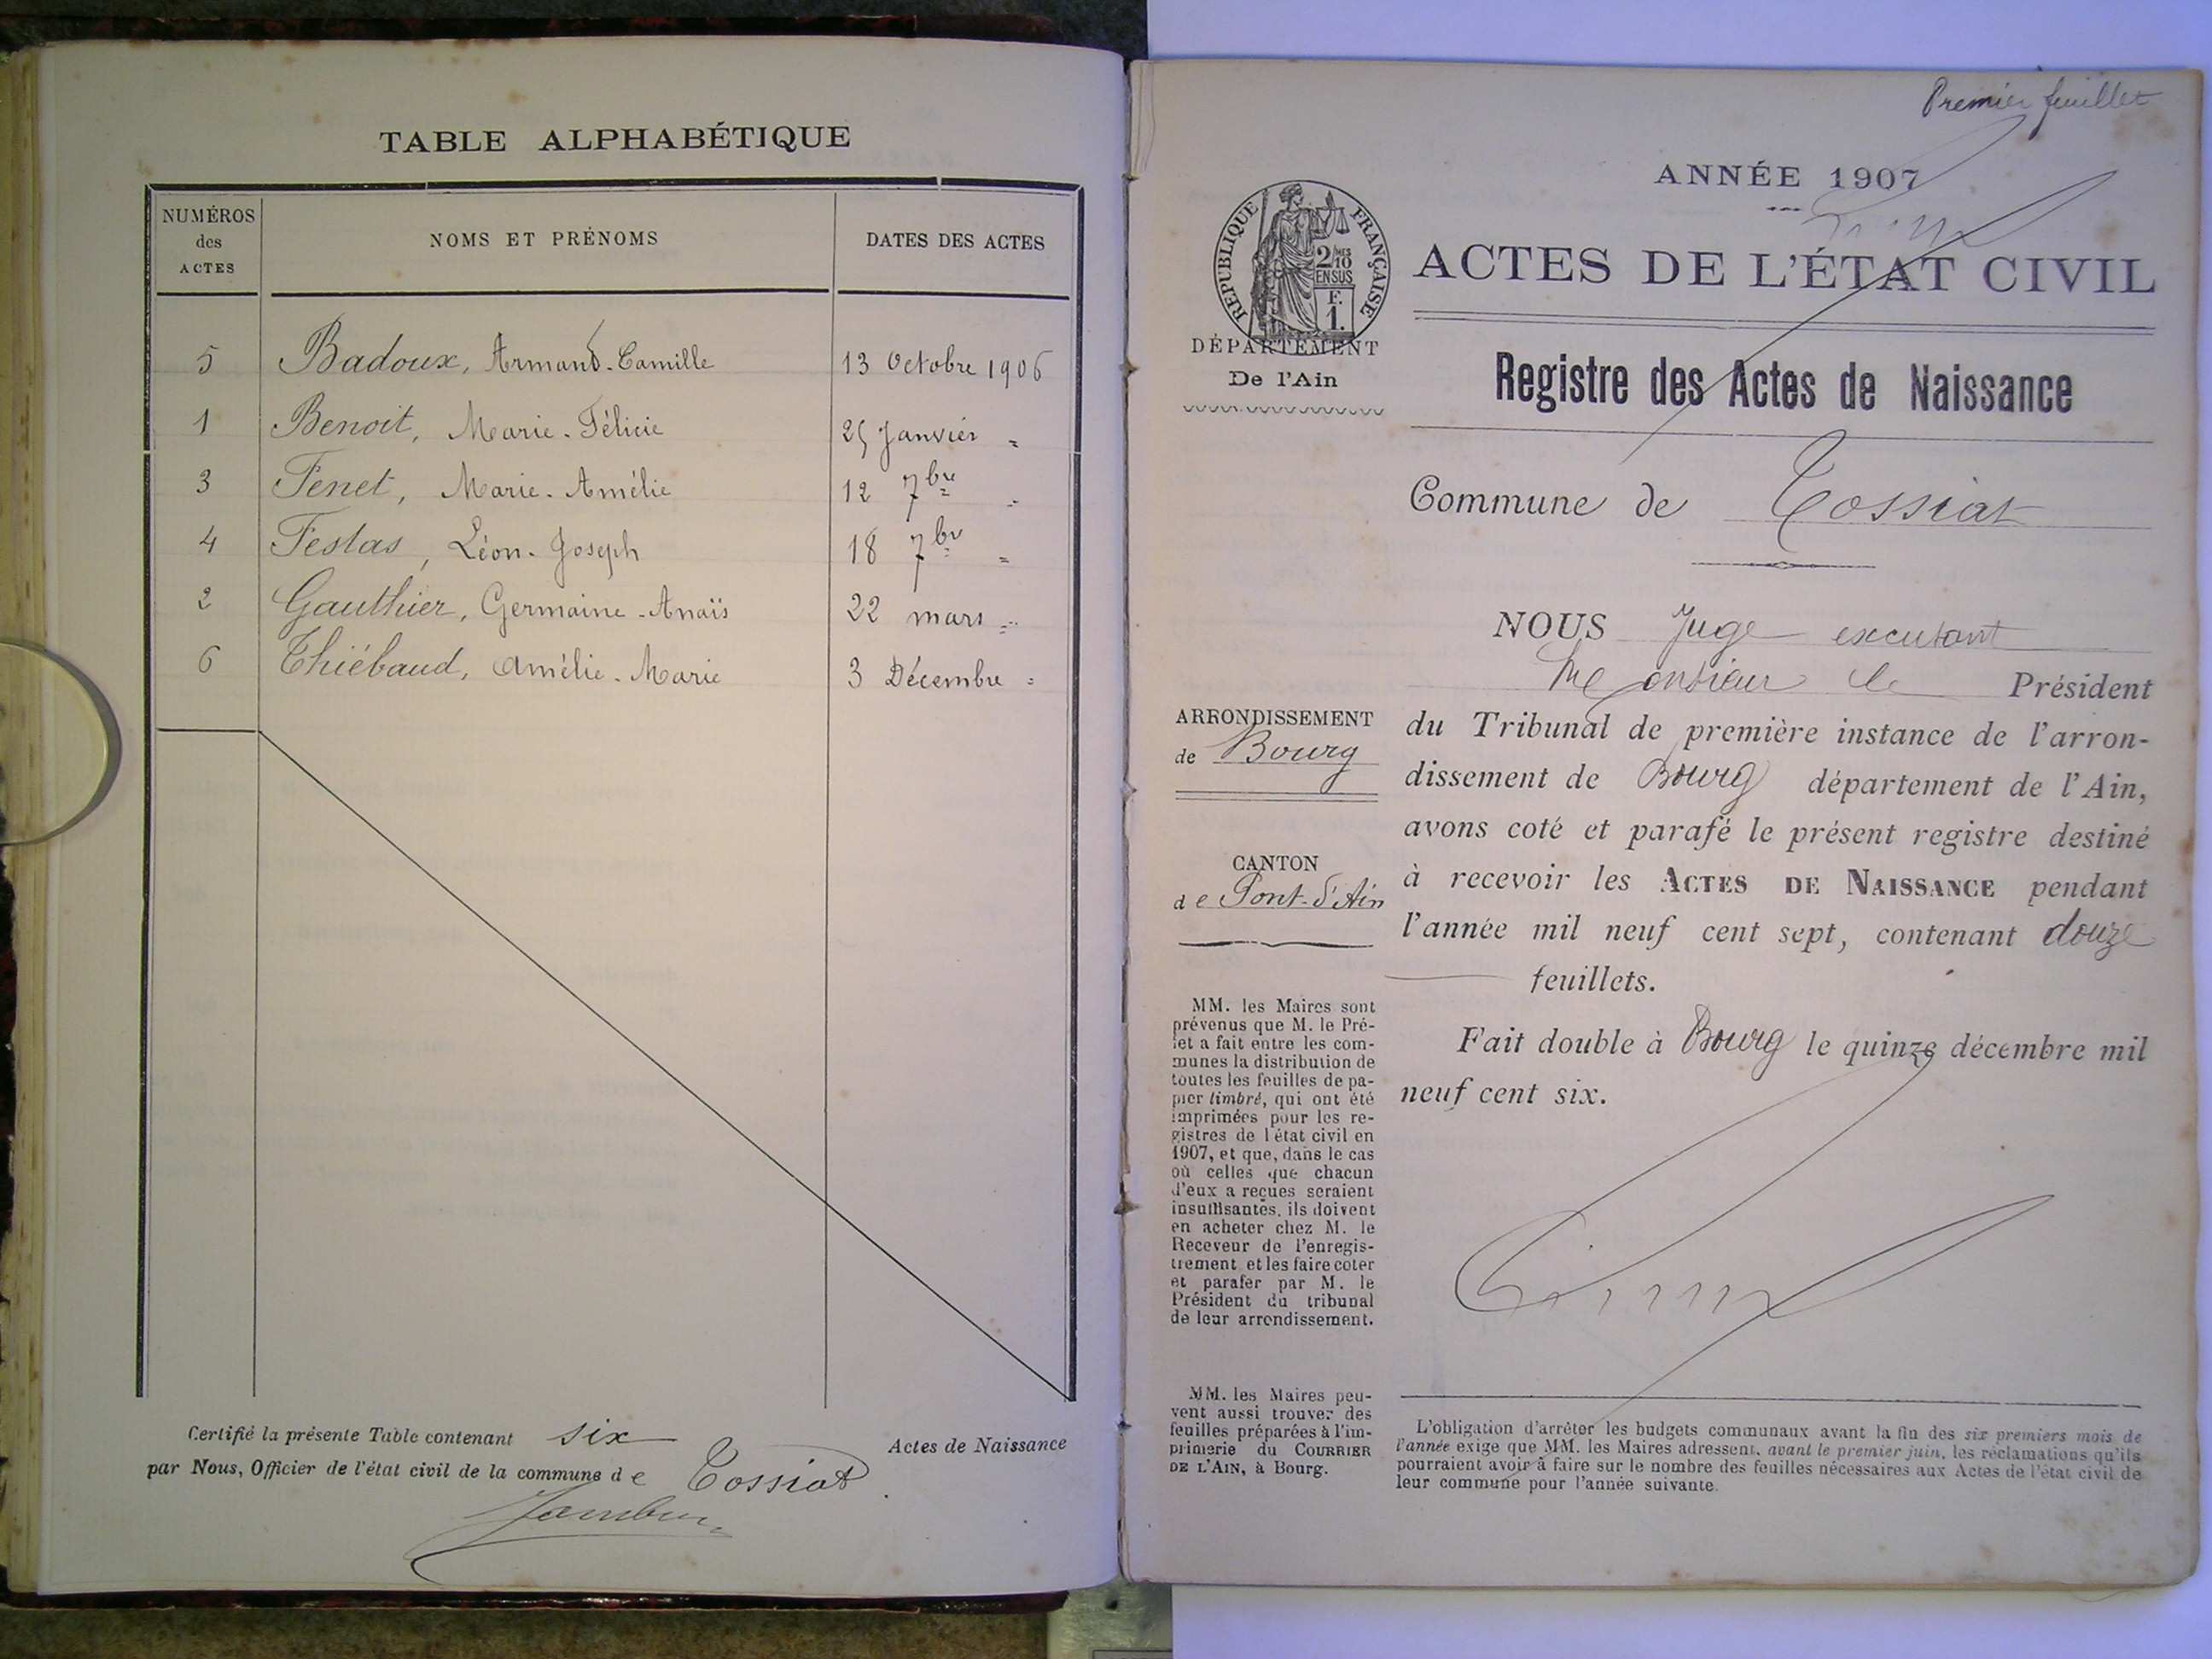 TABLE ALPHABÉTIQUE
NUMÉROS
des
ACTES
NOMS ET PRÉNOMS
DATES DES ACTES
5 Badoux, Armand-Camille 13 Octobre 1906
1 Benoit, Marie-Félicie 25 Janvier =
3 Fenet, Marie-Amélie 12 7bre =
4 Festas, Léon-Joseph 18 7bre =
2 Gauthier, Germaine-Anaïs 22 mars =
6 Thiébaud, Amélie-Marie 3 Décembre =
Certifié la présente Table contenant six Actes de Naissance
par Nous, Officier de l'état civil de la commune de Tossiat
Premier feuillet
ANNÉE 1907
RÉPUBLIQUE FRANÇAISE
2/10
EN SUS
F.
1.
ACTES DE L'ÉTAT CIVIL
DÉPARTEMENT
De l'Ain
Registre des Actes de Naissance
Commune de Tossiat
NOUS Juge
Monsieur le Président
du Tribunal de première instance de l'arron-
dissement de Bourg département de l'Ain,
avons coté et parafé le présent registre destiné
à recevoir les ACTES DE NAISSANCE pendant
l'année mil neuf cent sept, contenant douze
feuillets.
Fait double à Bourg le quinze décembre mil
neuf cent six.
ARRONDISSEMENT
de Bourg
CANTON
de Pont-d'Ain
MM. les Maires sont
prévenus que M. le Pré-
fet a fait entre les com-
munes la distribution de
toutes les feuilles de pa-
pier timbré, qui ont été
imprimées pour les re-
gistres de l'état civil en
1907, et que, dans le cas
où celles que chacun
d'eux a reçues seraient
insuffisantes, ils doivent
en acheter chez M. le
Receveur de l'enregis-
trement et les faire coter
et parafer par M. le
Président du tribunal
de leur arrondissement.
MM. les Maires peu-
vent aussi trouver des
feuilles préparées à l'im-
primerie du COURRIER
DE L'AIN, à Bourg.
L'obligation d'arrêter les budgets communaux avant la fin des six premiers mois de
l'année exige que MM. les Maires adressent, avant le premier juin, les réclamations qu'ils
pourraient avoir à faire sur le nombre des feuilles nécessaires aux Actes de l'état civil de
leur commune pour l'année suivante.